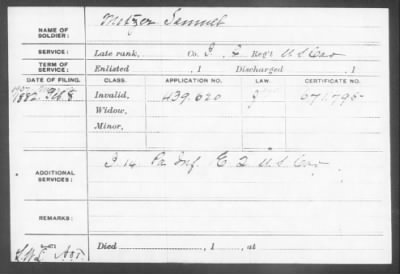 NAME OF SOLDIER: Metzer Samuel
SERVICE: Late rank, Co. I, 2 Reg't U S Cav
TERM OF SERVICE: Enlisted , 1 Discharged , 1
DATE OF FILING. CLASS. APPLICATION NO. LAW. CERTIFICATE NO.
1882 Feb 8 Invalid, 439.620 671.795
Widow,
Minor,
ADDITIONAL SERVICES: I 14 Pa Inf. E 2 U.S. Cav.
REMARKS:
Died , 1 , at